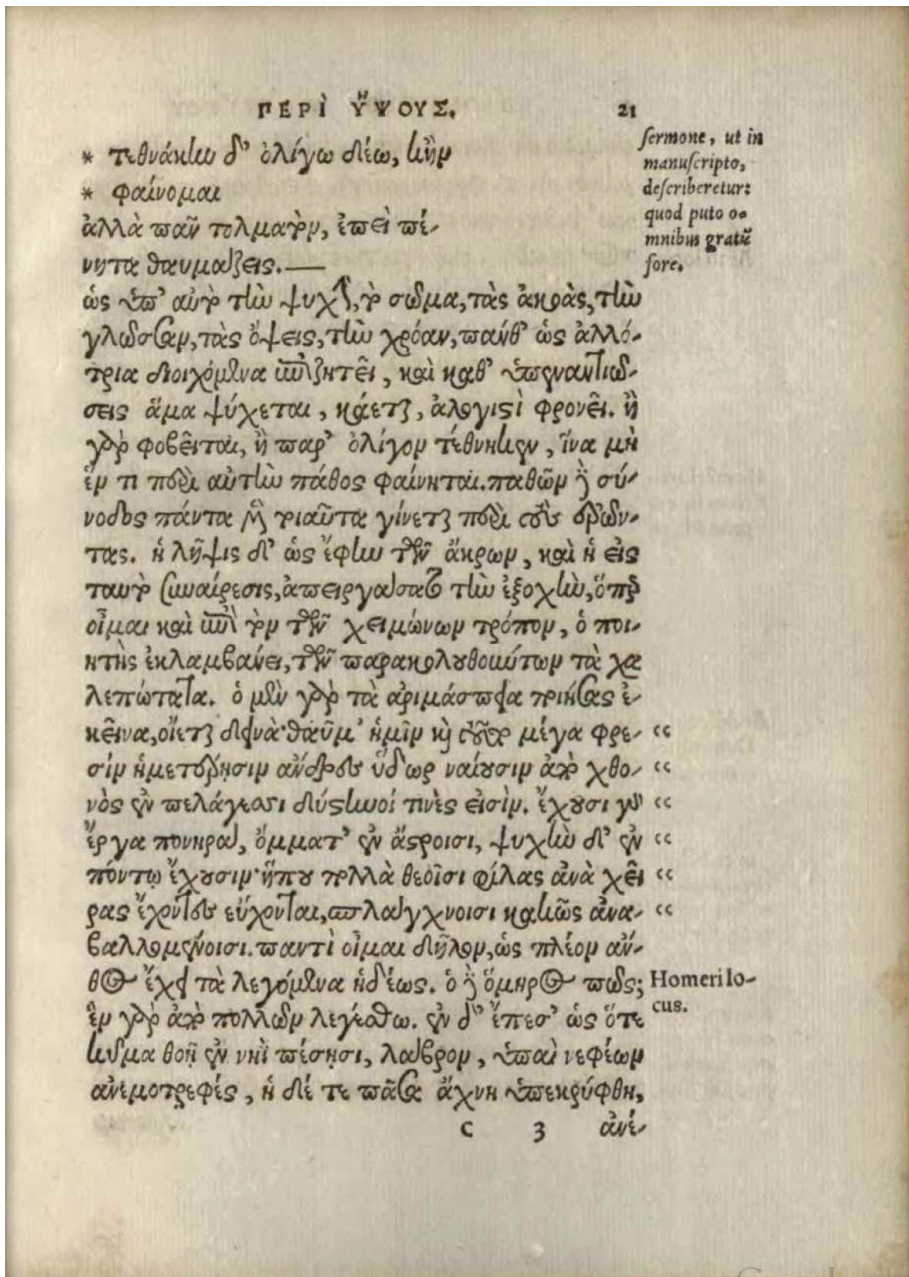 ΠΕΡῚ ὝΨΟΥΣ. 21
* τεθνάκην δ' ὀλίγω δέω, κἢν
* φαίνομαι
ἀλλὰ πᾶν τολματὸν, ἐπεὶ πέ-
νητα θαυμάζεις.—
ὡς ὑπ' αὐτὸ τὴν ψυχὴν, τὸ σῶμα, τὰς ἀκοὰς, τὴν
γλῶσσαν, τὰς ὄψεις, τὴν χρόαν, πάνθ' ὡς ἀλλό-
τρια διοιχόμενα ἐπιζητεῖ, καὶ καθ' ὑπεναντιώ-
σεις ἅμα ψύχεται, κάεται, ἀλογιστὶ φρονεῖ. ἢ
γὰρ φοβεῖται, ἢ παρ' ὀλίγον τέθνηκεν, ἵνα μὴ
ἕν τι περὶ αὐτὴν πάθος φαίνηται. παθῶν δὲ σύ-
νοδος πάντα μὲν τοιαῦτα γίνεται περὶ τοὺς ἐρῶν-
τας. ἡ λῆψις δ' ὡς ἔφην τῶν ἄκρων, καὶ ἡ εἰς
ταυτὸ συναίρεσις, ἀπειργάσατο τὴν ἐξοχὴν, ὅπερ
οἶμαι καὶ ἐπὶ τὸν τῶν χειμώνων τρόπον, ὁ ποι-
ητὴς ἐκλαμβάνει, τῶν παρακολουθούντων τὰ χα
λεπώτατα. ὁ μὲν γὰρ τὰ ἀριμάσπεια ποιήσας ἐ-
κεῖνα, οἴεται δεινά· θαῦμ' ἡμῖν καὶ τοῦτο μέγα φρε- “
σὶν ἡμετέρησιν ἄνδρες ὕδωρ ναίουσιν ἀπὸ χθο- “
νὸς ἐν πελάγεσσι δύστηνοί τινές εἰσίν. ἔχουσι γὰρ “
ἔργα πονηρά, ὄμματ' ἐν ἄστροισι, ψυχὴν δ' ἐν “
πόντῳ ἔχουσιν· ἦπου πολλὰ θεοῖσι φίλας ἀνὰ χεῖ “
ρας ἔχοντες εὔχονται, σπλάγχνοισι κακῶς ἀνα- “
βαλλομένοισι. παντὶ οἶμαι δῆλον, ὡς πλέον ἄν-
θος ἔχει τὰ λεγόμενα ἡδέως. ὁ δὲ ὅμηρος πῶς;
ἓν γὰρ ἀπὸ πολλῶν λεγέσθω. ἐν δ' ἔπεσ' ὡς ὅτε
κῦμα θοῇ ἐν νηῒ πέσῃσι, λάβρον, ὑπαὶ νεφέων
ἀνεμοτρεφές, ἡ δέ τε πᾶσα ἄχνη ὑπεκρύφθη,
C 3 ἀνέ-
sermone, ut in
manuscripto,
describeretur:
quod puto o-
mnibus gratũ
fore.
Homeri lo-
cus.